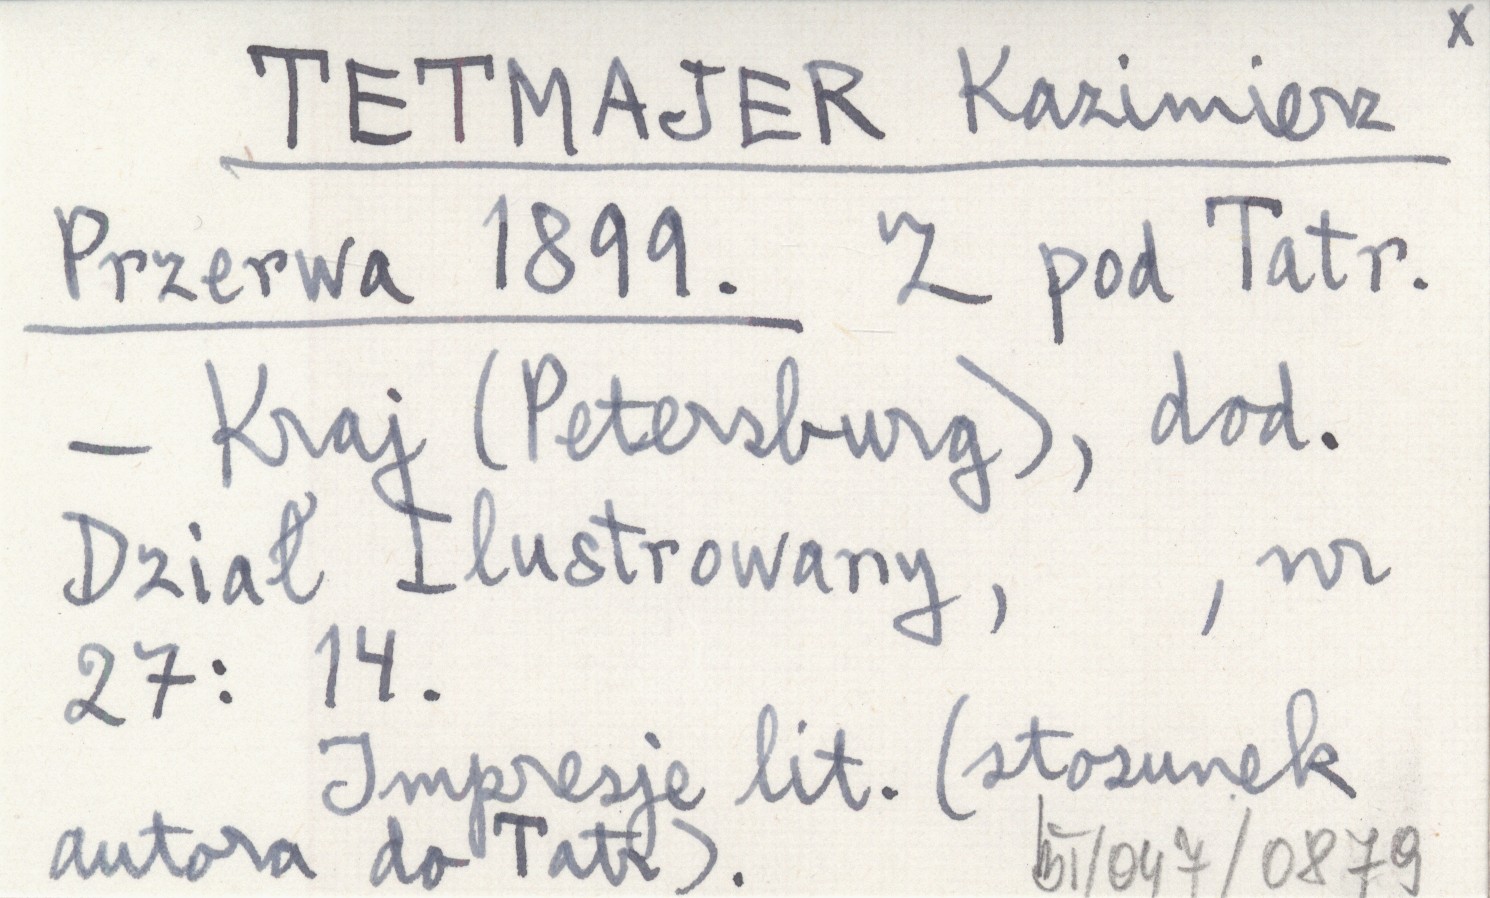 x
TETMAJER Kazimierz
Przerwa 1899. Z pod Tatr.
— Kraj (Petersburg), dod.
Dział Ilustrowany, , nr
27: 14.
Impresje lit. (stosunek
autora do Tatr).
/047/0879